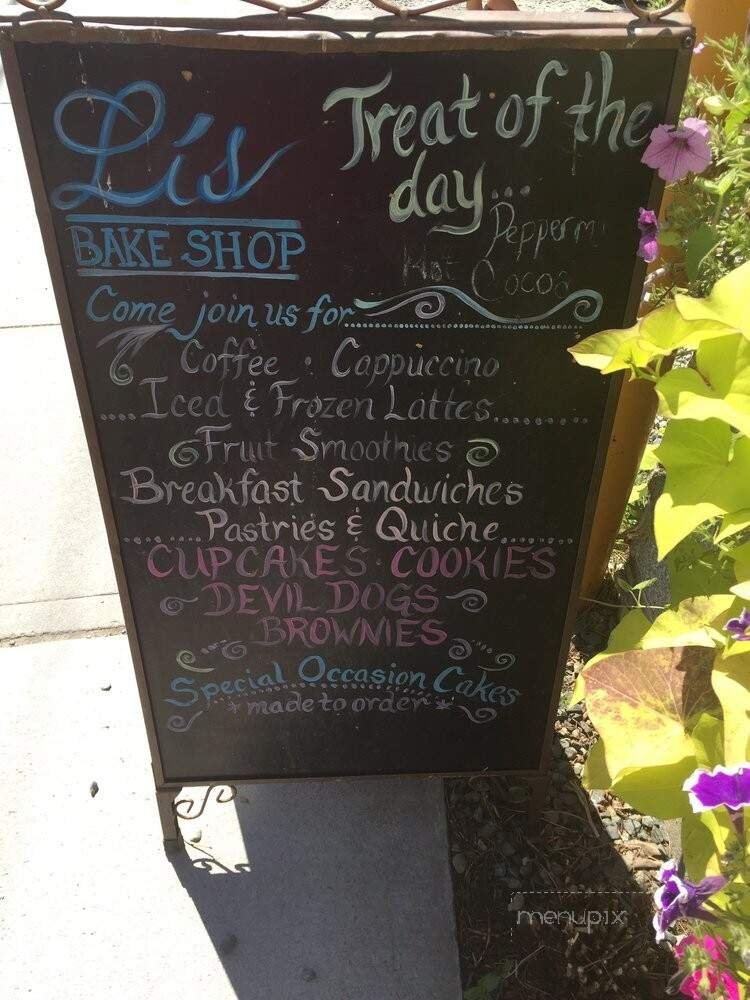 Li's
BAKE SHOP
Treat of the
day...
Hot Cocoa
Come join us for
Coffee · Cappuccino
Iced & Frozen Lattes
Fruit Smoothies
Breakfast Sandwiches
Pastries & Quiche
CUPCAKES · COOKIES
DEVIL DOGS
BROWNIES
Special Occasion Cakes
made to order
menupix